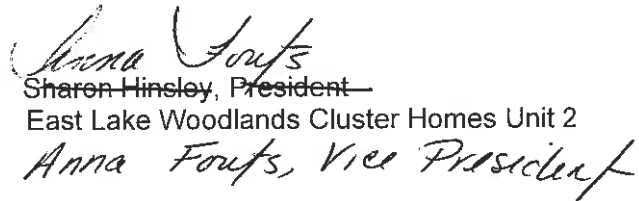 Anna Fouts
Sharon Hinsley, President
East Lake Woodlands Cluster Homes Unit 2
Anna Fouts, Vice President